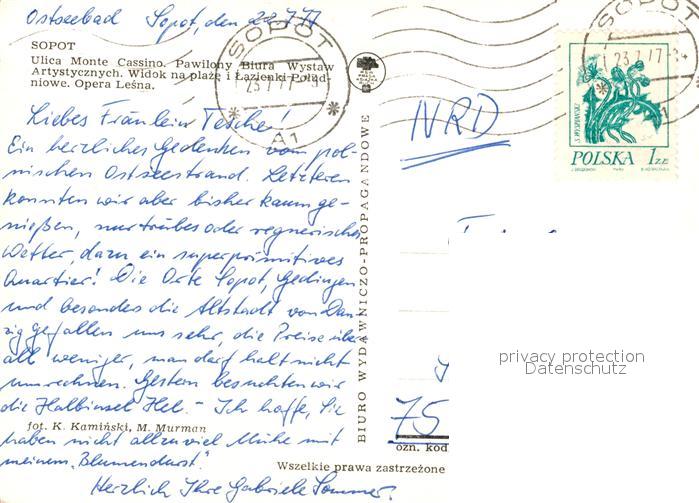 Ostseebad Sopot, den 22.7.77
SOPOT
Ulica Monte Cassino. Pawilony Biura Wystaw
Artystycznych. Widok na plażę i Łazienki Połud-
niowe. Opera Leśna.
SOPOT
23.7.77
A1
SOPOT
23.7.77
S. WYSPIAŃSKI
POLSKA 1 ZŁ
NRD
Liebes Fräulein Tesche!
Ein herzliches Gedenken vom pol-
nischen Ostseestrand. Letzteren
konnten wir aber bisher kaum ge-
nießen, nur trübes oder regnerisches
Wetter, dazu ein superprimitives
Quartier! Die Orte Sopot, Gedingen
und besonders die Altstadt von Dan-
zig gefallen uns sehr, die Preise über-
all weniger, man darf halt nicht
umrechnen. Gestern besuchten wir
die Halbinsel Hel. – Ich hoffe, Sie
fot. K. Kamiński, M. Murman
haben nicht allzuviel Mühe mit
meinem „Blumendurst".
Herzlich Ihre Gabriele Sommer.
BIURO WYDAWNICZO-PROPAGANDOWE
75
ozn. kod
Wszelkie prawa zastrzeżone
privacy protection
Datenschutz